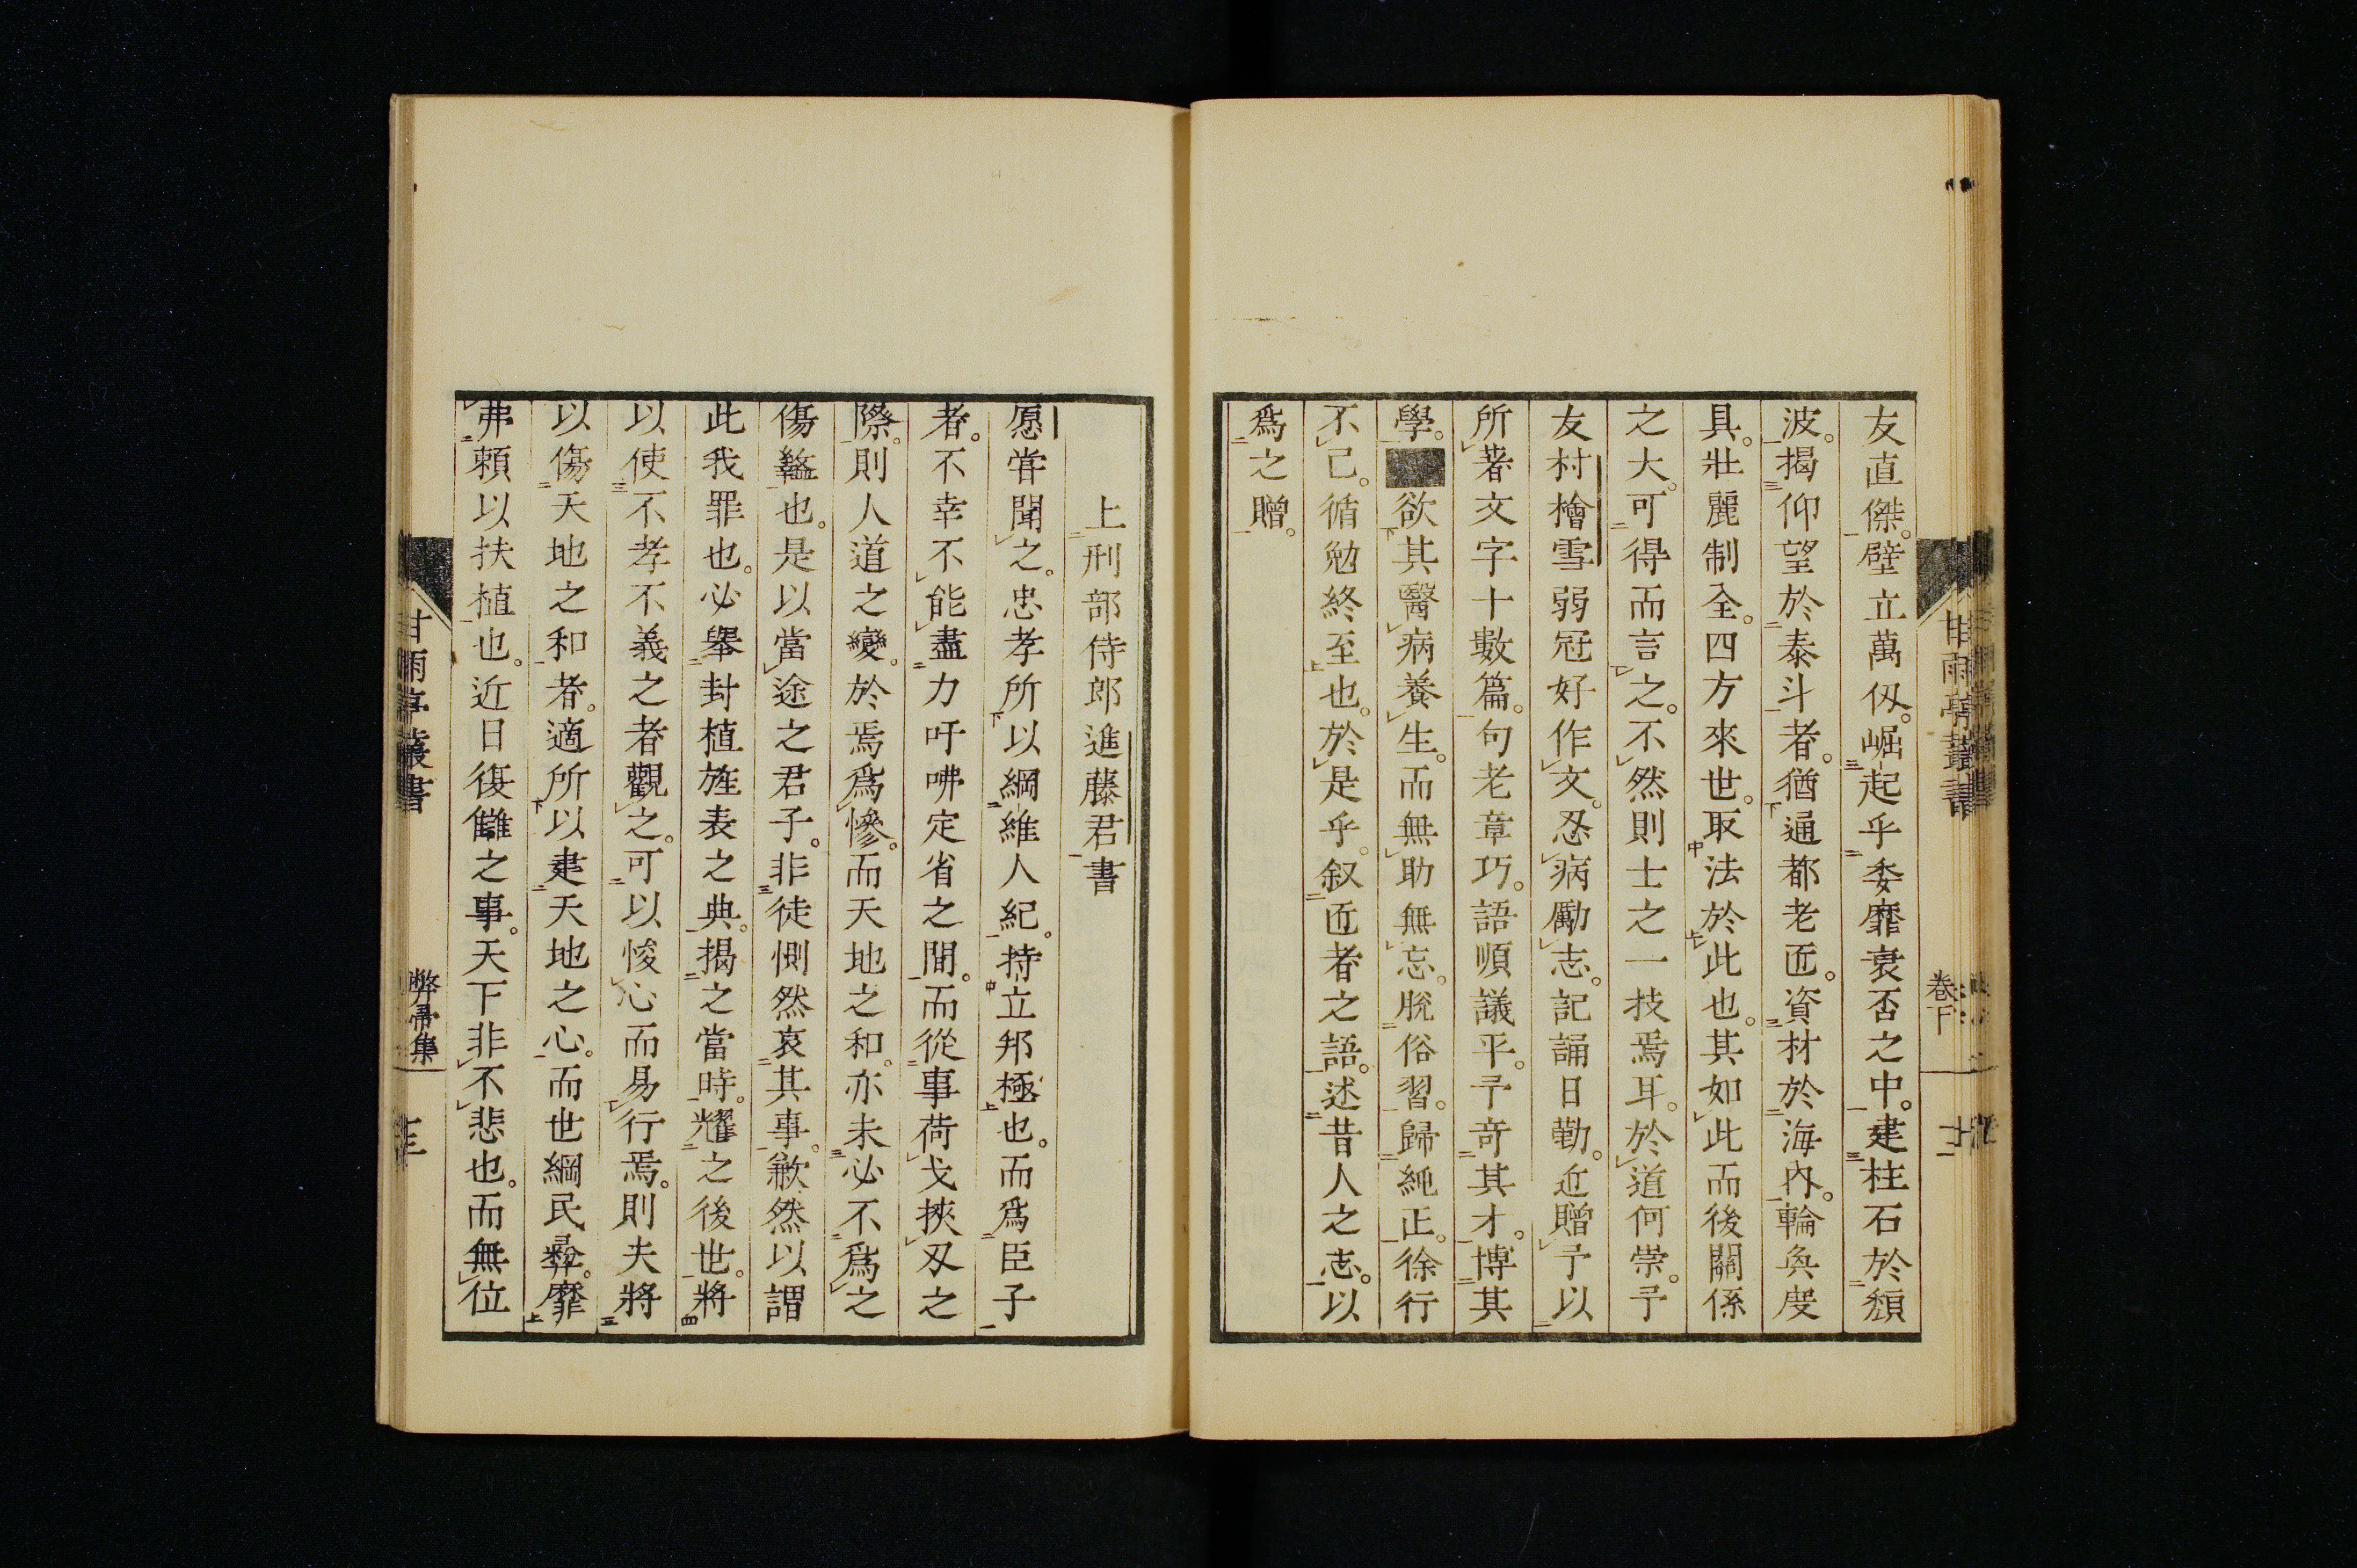 友直傑。壁立萬仭。崛起乎委靡衰否之中。建柱石於頽
波。揭仰望於泰斗者。猶通都老匠。資材於海內。輪奐度
具。壯麗制全。四方來世。取法於此也。其如此而後關係
之大。可得而言之。不然則士之一技焉耳。於道何崇。予
友村檜雪弱冠好作文。忍病勵志。記誦日勤。近贈予以
所著文字十數篇。句老章巧。語順議平。予奇其才。博其
學。■欲其醫病養生。而無助無忘。脫俗習。歸純正。徐行
不已。循勉終至也。於是乎。叙匠者之語。述昔人之志。以
爲之贈。
甘雨亭叢書
卷下
十二
上刑部侍郎進藤君書
愿甞聞之。忠孝所以綱維人紀。持立邦極也。而爲臣子
者。不幸不能盡力吁咈定省之間。而從事荷戈挾刄之
際。則人道之變。於焉爲慘。而天地之和。亦未必不爲之
傷盭也。是以當途之君子。非徒惻然哀其事。歉然以謂
此我罪也。必舉封植旌表之典。揭之當時。耀之後世。將
以使不孝不義之者觀之。可以悛心而易行焉。則夫將
以傷天地之和者。適所以建天地之心。而世綱民彜。靡
弗賴以扶植也。近日復讎之事。天下非不悲也。而無位
甘雨亭叢書
弊帚集